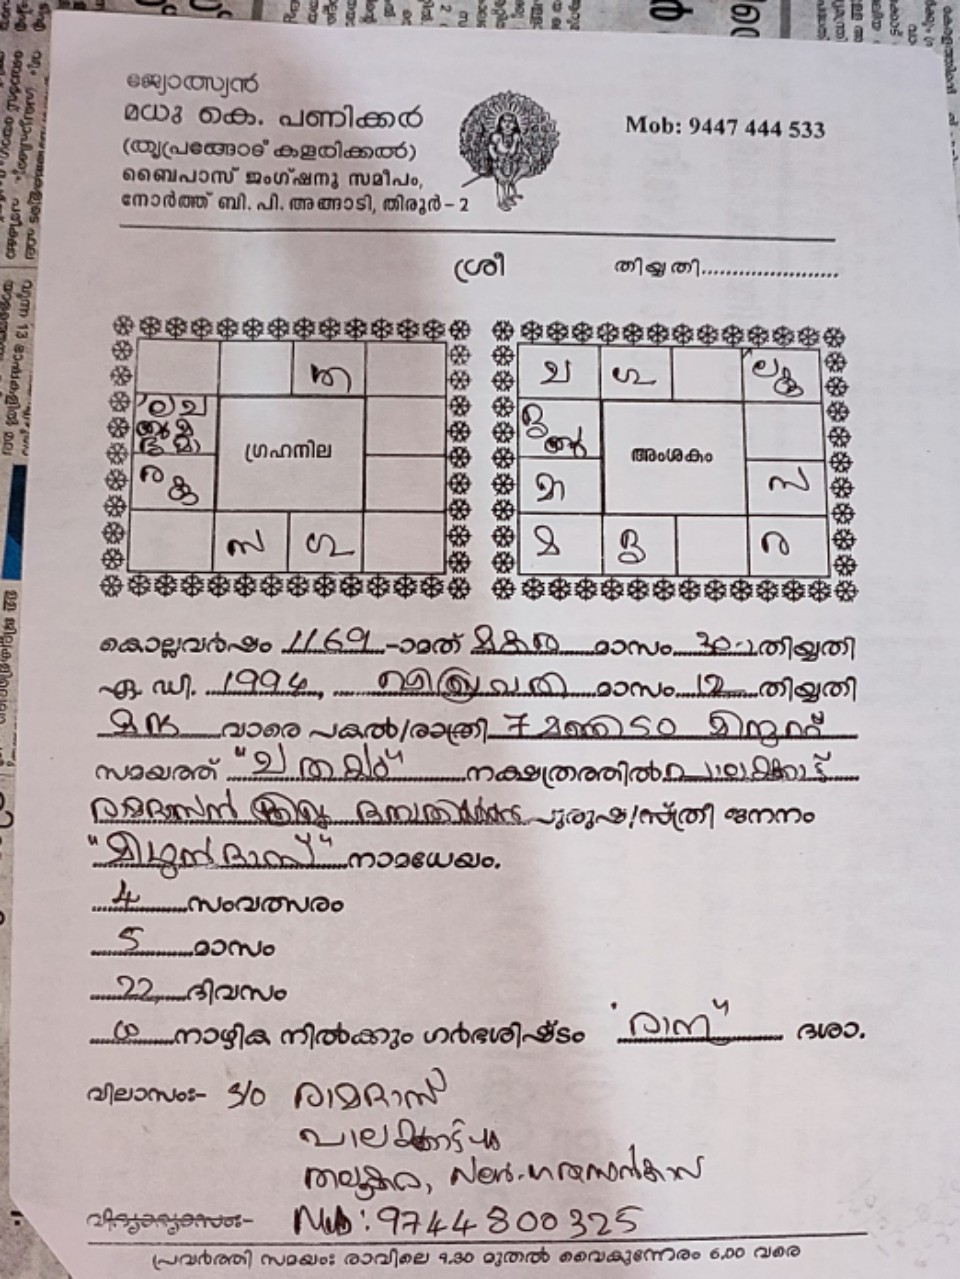 ജ്യോത്സ്യൻ
മധു കെ. പണിക്കർ
(തൃപ്രങ്ങോട് കളരിക്കൽ)
ബൈപാസ് ജംഗ്ഷനു സമീപം,
നോർത്ത് ബി. പി. അങ്ങാടി, തിരൂർ - 2
Mob: 9447 444 533
ശ്രീ തിയ്യതി......................
ഗ്രഹനില
അംശകം
കൊല്ലവർഷം 1169 -ാമത് മകരം മാസം 30 -ാ തിയ്യതി
ഏ. ഡി. 1994, ഫെബ്രുവരി മാസം 12 തിയ്യതി
മന്ദ വാരെ പകൽ/രാത്രി 7 മണി 50 മിനുട്ട്
സമയത്ത് "ചതയം" നക്ഷത്രത്തിൽ പാലക്കാട്ട്
രാമദാസൻ ദമ്പതികളുടെ പുരുഷ/സ്ത്രീ ജനനം
"മിഥുൻ ദാസ്" നാമധേയം.
4 സംവത്സരം
5 മാസം
22 ദിവസം
നാഴിക നിൽക്കും ഗർഭശിഷ്ടം "രാഹു" ദശാ.
വിലാസം:- S/O രാമദാസ്
പാലക്കാട്ട്
Mob: 9744800325
പ്രവർത്തി സമയം: രാവിലെ 9.30 മുതൽ വൈകുന്നേരം 6.00 വരെ